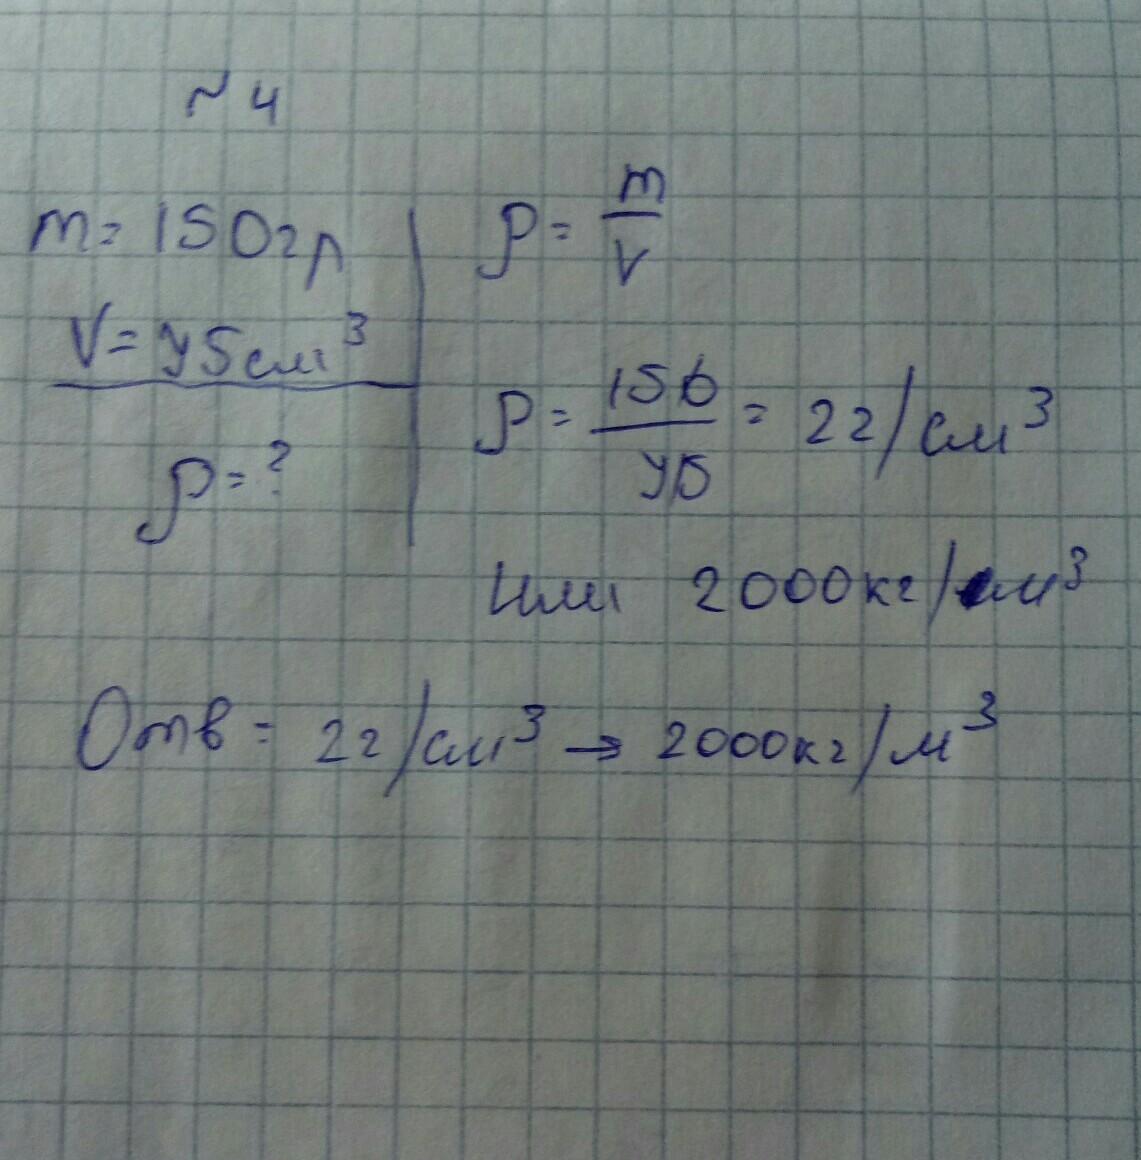 ~ 4
m = 150гр
V = 75см³
ρ = ?
ρ = m/V
ρ = 150/75 = 2г/см³
Или 2000кг/м³
Отв = 2г/см³ → 2000кг/м³